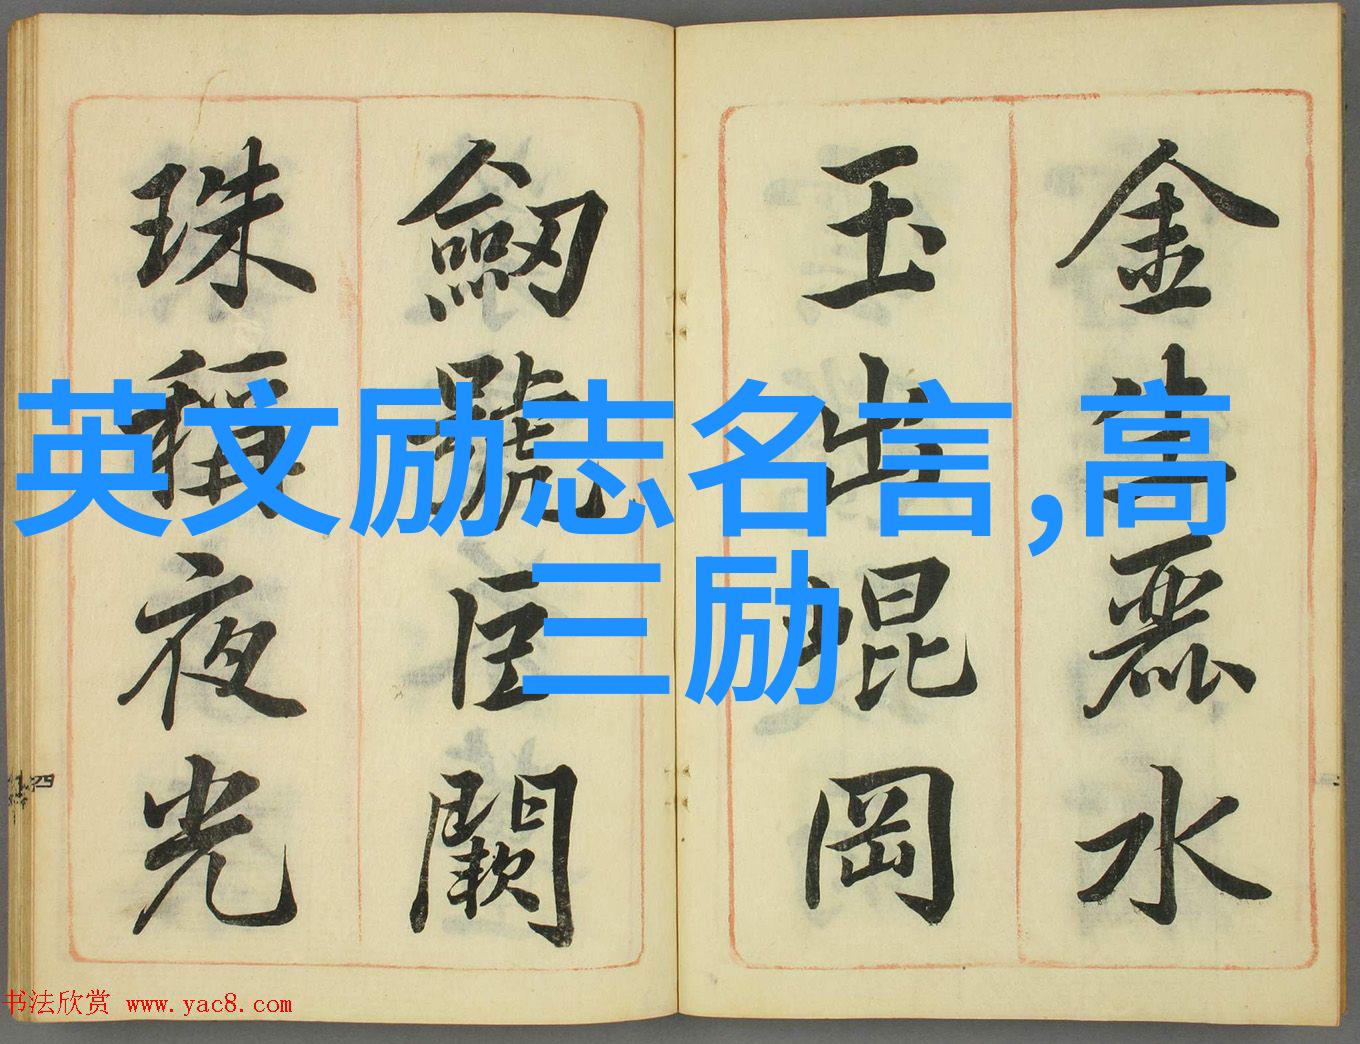 金生麗水
玉出崐岡
劒號巨闕
珠稱夜光
英文励志名言,高
三励
书法欣赏 www.yac8.com